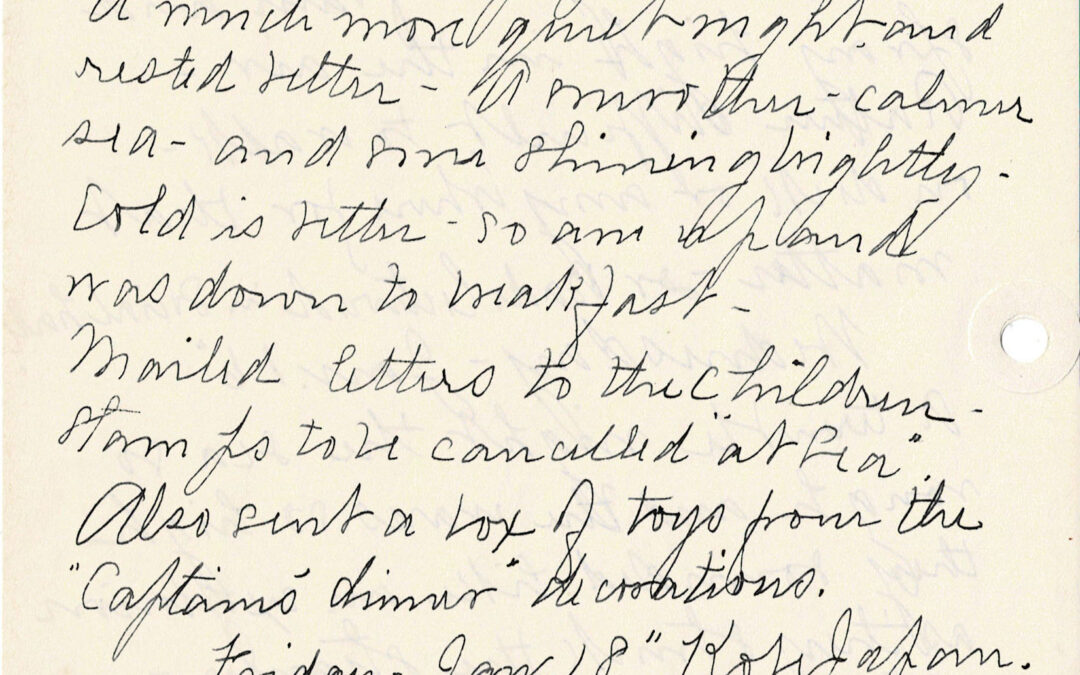 A much more quiet night and
rested better - A smoother - calmer
sea - and sun shining brightly -
Cold is better - so am up and
was down to breakfast -
Mailed letters to the children -
stamps to be cancelled "at Sea".
Also sent a box of toys from the
"Captains' dinner" decorations.
Friday - Jan 18" Kobe Japan.